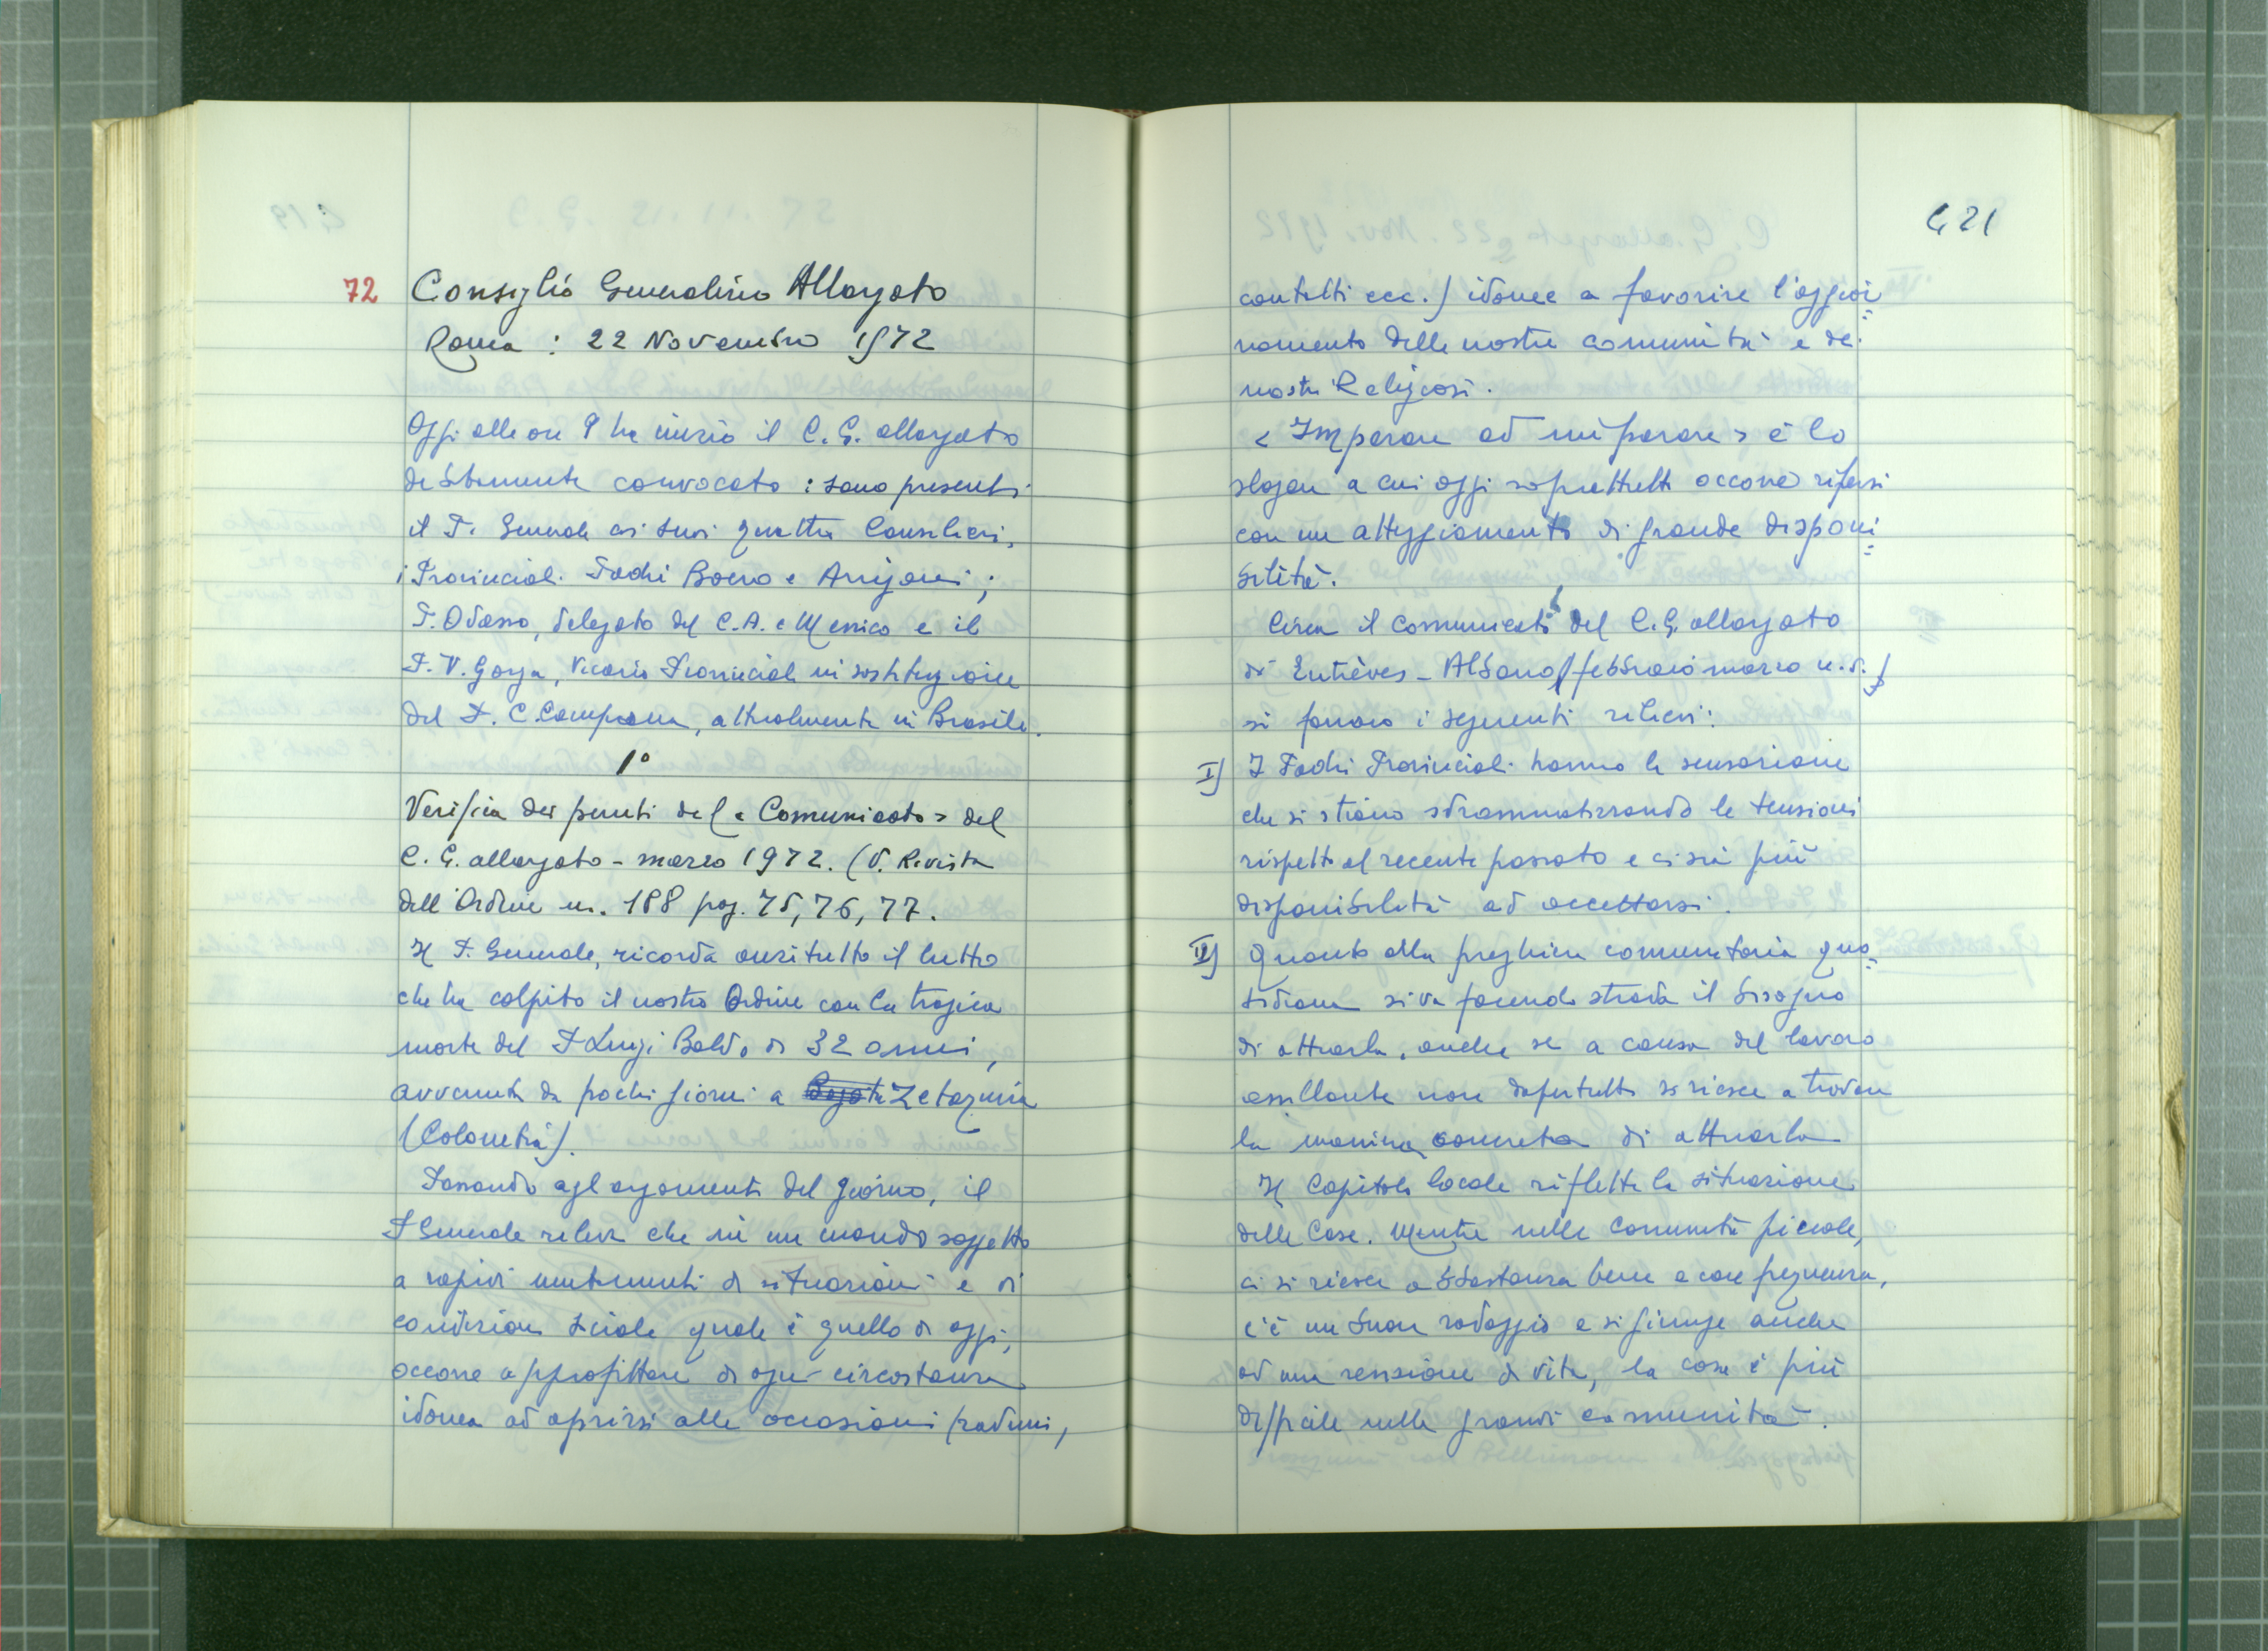 72 Consiglio Generalizio Allargato
Roma : 22 Novembre 1972
Oggi alle ore 9 ha inizio il C. G. allargato
debitamente convocato : sono presenti
il P. Generale coi suoi quattro Consiglieri,
i Provinciali Padri Boero e Arrigoni ;
P. Odasso, delegato del C.A. e Messico e il
P. V. Gorga, Vicario Provinciale in sostituzione
del P. C. Campana, attualmente in Brasile.
1°
Verifica dei punti del « Comunicato » del
C. G. allargato - marzo 1972. (V. Rivista
dell'Ordine n. 188 pag. 75, 76, 77.
Il P. Generale, ricorda anzitutto il lutto
che ha colpito il nostro Ordine con la tragica
morte del P Luigi Baldo di 32 anni,
avvenuta da pochi giorni a Zetaquira
(Colombia).
Passando agl argomenti del giorno, il
P Generale rileva che in un mondo soggetto
a rapidi mutamenti di situazioni e di
condizioni sociale quale è quello di oggi,
occorre approfittare di ogni circostanza
idonea ad aprirsi alle occasioni (raduni,
G 21
contatti ecc.) idonee a favorire l'aggior=
namento delle nostre comunità e dei
nostri Religiosi.
< Imparare ad imparare > è lo
slogan a cui oggi soprattutto occorre rifarsi
con un atteggiamento di grande disponi=
bilità.
Circa il comunicato del C. G. allargato
di Entrèves - Albano (febbraio marzo u. s.)
si fanno i seguenti rilievi:
I) I Padri Provinciali hanno la sensazione
che si stiano sdrammatizzando le tensioni
rispetto al recente passato e ci sia più
disponibilità ad accettarsi.
II) Quanto alla preghiera comunitaria quo=
tidiana si va facendo strada il bisogno
di attuarla, anche se a causa del lavoro
assillante non dapertutto si riesce a trovare
la maniera concreta di attuarla
Il Capitolo locale riflette la situazione
delle Case. Mentre nelle Comunità piccole,
ci si riesce abbastanza bene e con frequenza,
c'è un buon rodaggio e si giunge anche
ad una revisione di vita, la cosa è più
difficile nelle grandi comunità.